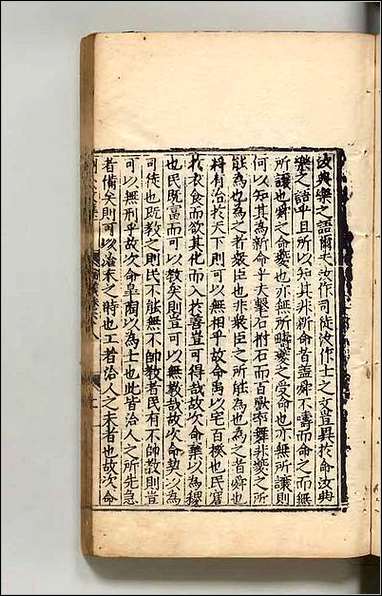 汝典樂之語爾夫汝作司徒汝作士之文豈異於命汝典
樂之語乎且所以知其非新命者蓋舜不疇而命之而無
所讓也舜之命夔也亦無所疇夔之受命也亦無所讓則
何以知其為新命乎夫擊石拊石而百獸率舞非夔之所
能為也為之者衆臣也非衆臣之所能為也為之者舜也
將有治於天下則可以無相乎故命禹以宅百揆也民窘
於衣食而欲其化而入於善豈可得哉故次命棄以為稷
也民既富而可以教矣則豈可以無教哉故次命契以為
司徒也既教之則民不能無不帥教者民有不帥教則豈
可以無刑乎故次命皐陶以為士也此皆治人之所先急
者備矣則可以治末之時也工者治人之末者也故次命